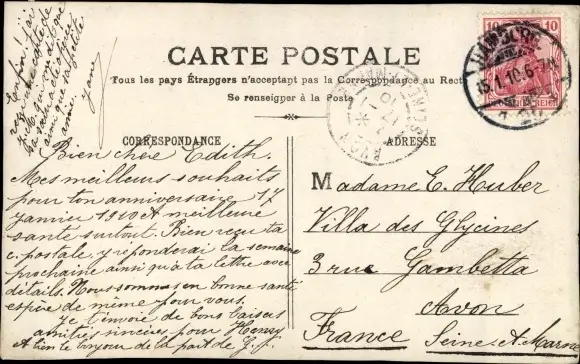 Enfin! j'ai
reçu ta carte de
Jane
CARTE POSTALE
Tous les pays Étrangers n'acceptent pas la Correspondance au Recto
Se renseigner à la Poste
HAMBURG
15.1.10.6-7N.
10 10
DEUTSCHES REICH
CORRESPONDANCE
Bien chère Edith.
Mes meilleurs souhaits
pour ton anniversaire 17
janvier 1910 et meilleure
santé surtout. Bien reçu ta
c. postale, y répondrai la semaine
prochaine ainsi qu'à ta lettre avec
détails. Nous sommes en bonne santé
espère de même pour vous.
Je t'envoie de bons baisers
amitiés sincères pour Henry
et bien le bonjour de la part de G.
ADRESSE
Madame E. Huber
Villa des Glycines
3 rue Gambetta
Avon
France Seine et Marne